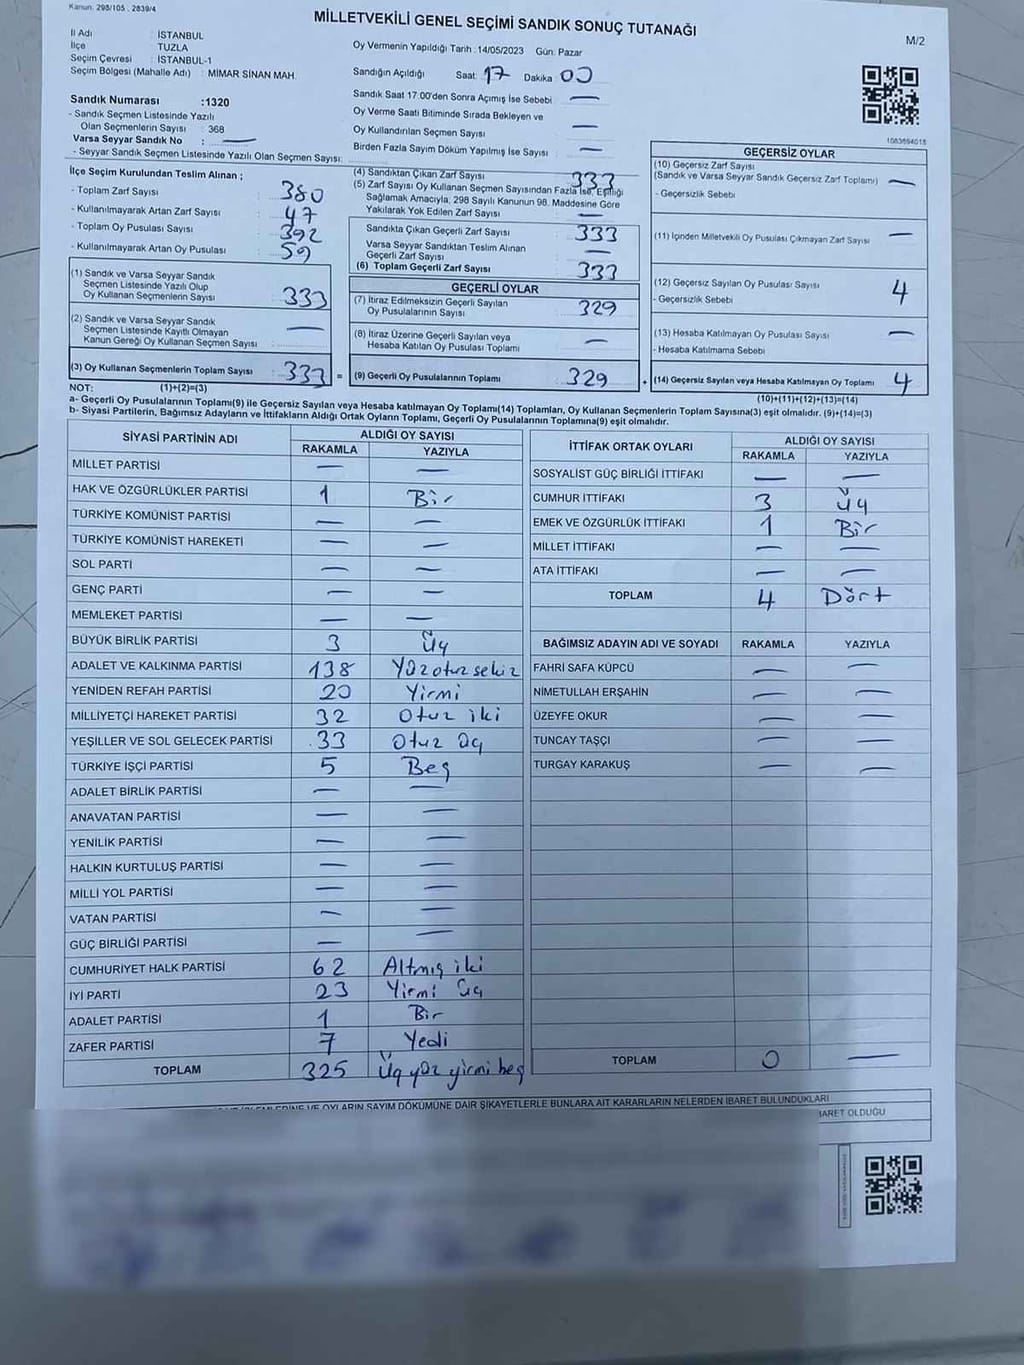 Kanun: 298/105 , 2839/4
MİLLETVEKİLİ GENEL SEÇİMİ SANDIK SONUÇ TUTANAĞI
M/2
İl Adı : İSTANBUL
İlçe : TUZLA
Seçim Çevresi : İSTANBUL-1
Seçim Bölgesi (Mahalle Adı) : MİMAR SİNAN MAH.
Sandık Numarası :1320
- Sandık Seçmen Listesinde Yazılı
Olan Seçmenlerin Sayısı : 368
Varsa Seyyar Sandık No : —
- Seyyar Sandık Seçmen Listesinde Yazılı Olan Seçmen Sayısı:
Oy Vermenin Yapıldığı Tarih : 14/05/2023 Gün: Pazar
Sandığın Açıldığı Saat 17 Dakika 00
Sandık Saat 17:00'den Sonra Açılmış İse Sebebi —
Oy Verme Saati Bitiminde Sırada Bekleyen ve
Oy Kullandırılan Seçmen Sayısı —
Birden Fazla Sayım Döküm Yapılmış İse Sayısı —
1083694018
İlçe Seçim Kurulundan Teslim Alınan ;
- Toplam Zarf Sayısı : 380
- Kullanılmayarak Artan Zarf Sayısı : 47
- Toplam Oy Pusulası Sayısı : 392
- Kullanılmayarak Artan Oy Pusulası : 59
(1) Sandık ve Varsa Seyyar Sandık
Seçmen Listesinde Yazılı Olup
Oy Kullanan Seçmenlerin Sayısı : 333
(2) Sandık ve Varsa Seyyar Sandık
Seçmen Listesinde Kayıtlı Olmayan
Kanun Gereği Oy Kullanan Seçmen Sayısı : —
(3) Oy Kullanan Seçmenlerin Toplam Sayısı : 333 =
(4) Sandıktan Çıkan Zarf Sayısı 333
(5) Zarf Sayısı Oy Kullanan Seçmen Sayısından Fazla İse, Eşitliği
Sağlamak Amacıyla, 298 Sayılı Kanunun 98. Maddesine Göre
Yakılarak Yok Edilen Zarf Sayısı —
Sandıkta Çıkan Geçerli Zarf Sayısı 333
Varsa Seyyar Sandıktan Teslim Alınan
Geçerli Zarf Sayısı —
(6) Toplam Geçerli Zarf Sayısı 333
GEÇERLİ OYLAR
(7) İtiraz Edilmeksizin Geçerli Sayılan
Oy Pusulalarının Sayısı 329
(8) İtiraz Üzerine Geçerli Sayılan veya
Hesaba Katılan Oy Pusulası Toplamı —
(9) Geçerli Oy Pusulalarının Toplamı 329 +
GEÇERSİZ OYLAR
(10) Geçersiz Zarf Sayısı
(Sandık ve Varsa Seyyar Sandık Geçersiz Zarf Toplamı) —
- Geçersizlik Sebebi
(11) İçinden Milletvekili Oy Pusulası Çıkmayan Zarf Sayısı —
(12) Geçersiz Sayılan Oy Pusulası Sayısı 4
- Geçersizlik Sebebi
(13) Hesaba Katılmayan Oy Pusulası Sayısı —
- Hesaba Katılmama Sebebi
(14) Geçersiz Sayılan veya Hesaba Katılmayan Oy Toplamı 4
NOT: (1)+(2)=(3) (10)+(11)+(12)+(13)=(14)
a- Geçerli Oy Pusulalarının Toplamı(9) ile Geçersiz Sayılan veya Hesaba katılmayan Oy Toplamı(14) Toplamları, Oy Kullanan Seçmenlerin Toplam Sayısına(3) eşit olmalıdır. (9)+(14)=(3)
b- Siyasi Partilerin, Bağımsız Adayların ve İttifakların Aldığı Ortak Oyların Toplamı, Geçerli Oy Pusulalarının Toplamına(9) eşit olmalıdır.
SİYASİ PARTİNİN ADI ALDIĞI OY SAYISI
RAKAMLA YAZIYLA
MİLLET PARTİSİ — —
HAK VE ÖZGÜRLÜKLER PARTİSİ 1 Bir
TÜRKİYE KOMÜNİST PARTİSİ — —
TÜRKİYE KOMÜNİST HAREKETİ — —
SOL PARTİ — —
GENÇ PARTİ — —
MEMLEKET PARTİSİ — —
BÜYÜK BİRLİK PARTİSİ 3 Üç
ADALET VE KALKINMA PARTİSİ 138 Yüzotuzsekiz
YENİDEN REFAH PARTİSİ 20 Yirmi
MİLLİYETÇİ HAREKET PARTİSİ 32 Otuz iki
YEŞİLLER VE SOL GELECEK PARTİSİ 33 Otuz üç
TÜRKİYE İŞÇİ PARTİSİ 5 Beş
ADALET BİRLİK PARTİSİ — —
ANAVATAN PARTİSİ — —
YENİLİK PARTİSİ — —
HALKIN KURTULUŞ PARTİSİ — —
MİLLİ YOL PARTİSİ — —
VATAN PARTİSİ — —
GÜÇ BİRLİĞİ PARTİSİ — —
CUMHURİYET HALK PARTİSİ 62 Altmış iki
İYİ PARTİ 23 Yirmi üç
ADALET PARTİSİ 1 Bir
ZAFER PARTİSİ 7 Yedi
TOPLAM 325 Üç yüz yirmi beş
İTTİFAK ORTAK OYLARI ALDIĞI OY SAYISI
RAKAMLA YAZIYLA
SOSYALİST GÜÇ BİRLİĞİ İTTİFAKI — —
CUMHUR İTTİFAKI 3 Üç
EMEK VE ÖZGÜRLÜK İTTİFAKI 1 Bir
MİLLET İTTİFAKI — —
ATA İTTİFAKI — —
TOPLAM 4 Dört
BAĞIMSIZ ADAYIN ADI VE SOYADI RAKAMLA YAZIYLA
FAHRİ SAFA KÜPCÜ — —
NİMETULLAH ERŞAHİN — —
ÜZEYFE OKUR — —
TUNCAY TAŞÇI — —
TURGAY KARAKUŞ — —
TOPLAM 0 —
VE OYLARIN SAYIM DÖKÜMÜNE DAİR ŞİKAYETLERLE BUNLARA AİT KARARLARIN NELERDEN İBARET BULUNDUKLARI
OLDUĞU